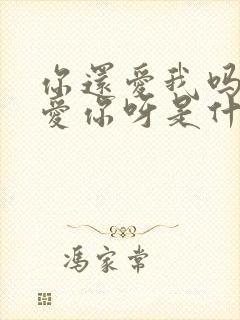 你還愛我嗎
愛你呀是什
馮家常